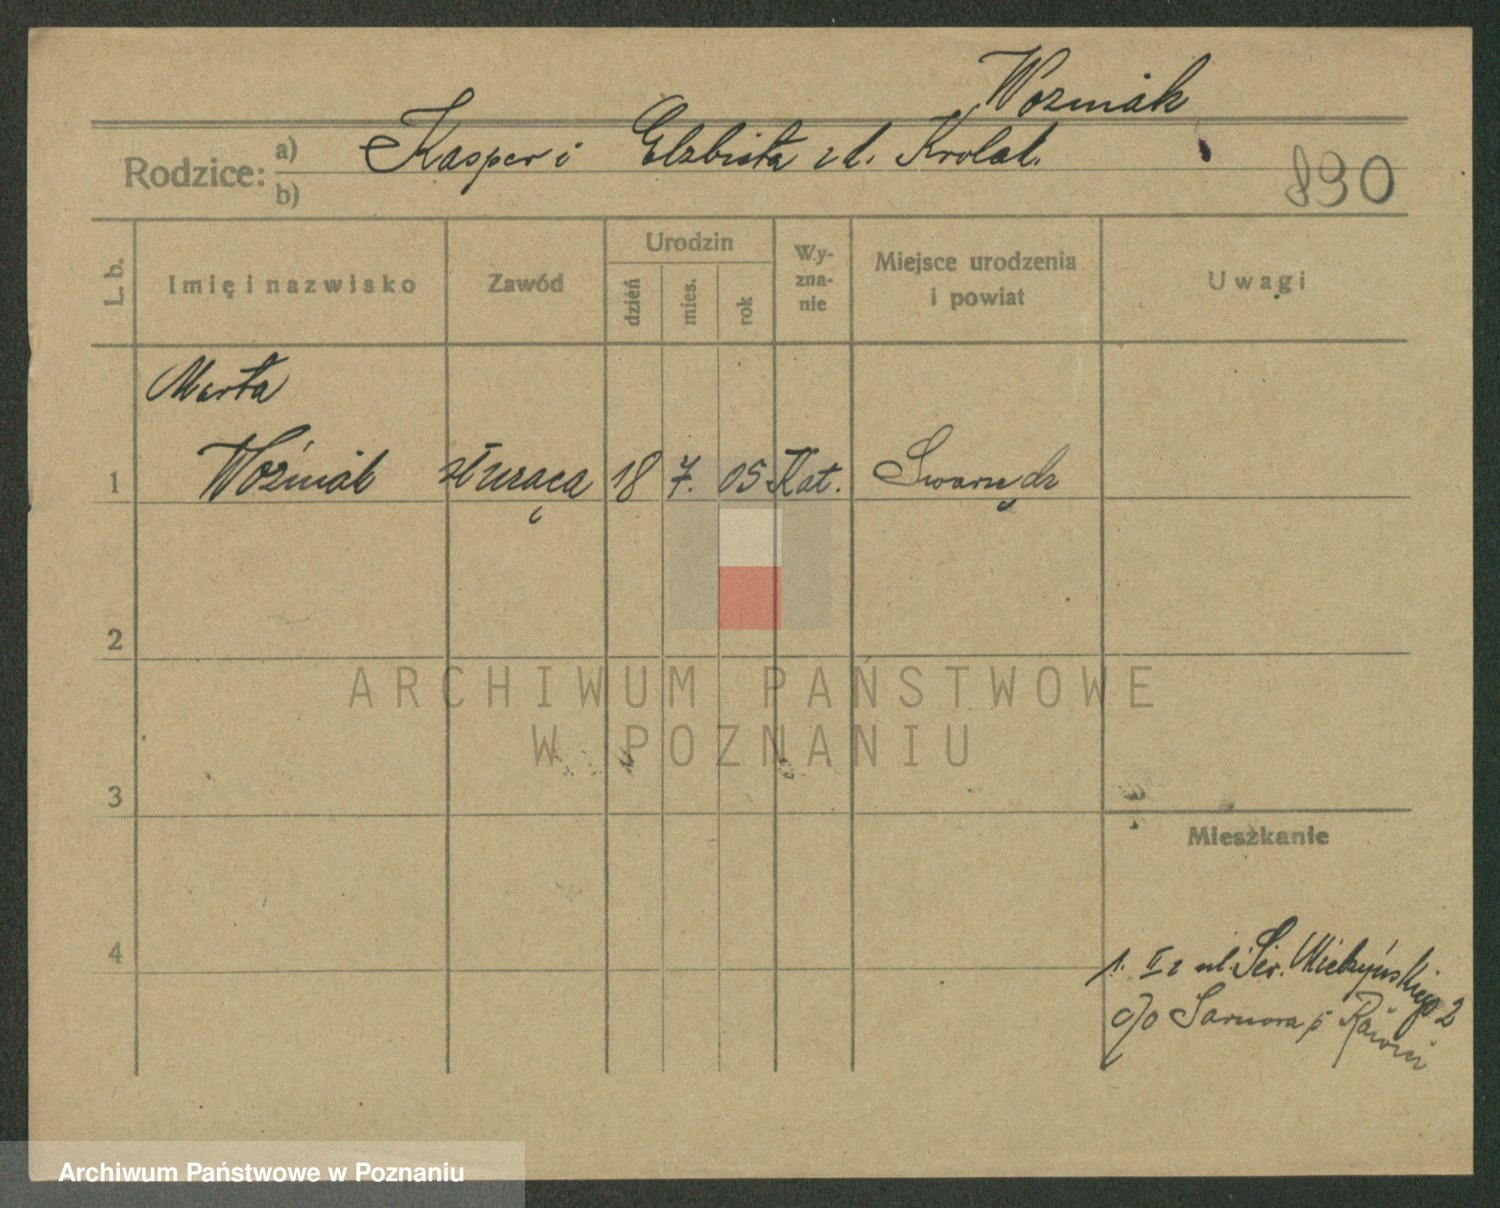 Woźniak
Rodzice: a) b) Kasper i Elzbieta z d. Krolak.
890
L. b. Imię i nazwisko Zawód Urodzin dzień mies. rok Wyznanie Miejsce urodzenia i powiat Uwagi
Marta
1 Woźniak służąca 18 7. 05 Kat. Swarzędz
2
ARCHIWUM PAŃSTWOWE
W POZNANIU
3
Mieszkanie
4
1. II z ul. Sew. Mielżyńskiego 2
c/o
Archiwum Państwowe w Poznaniu